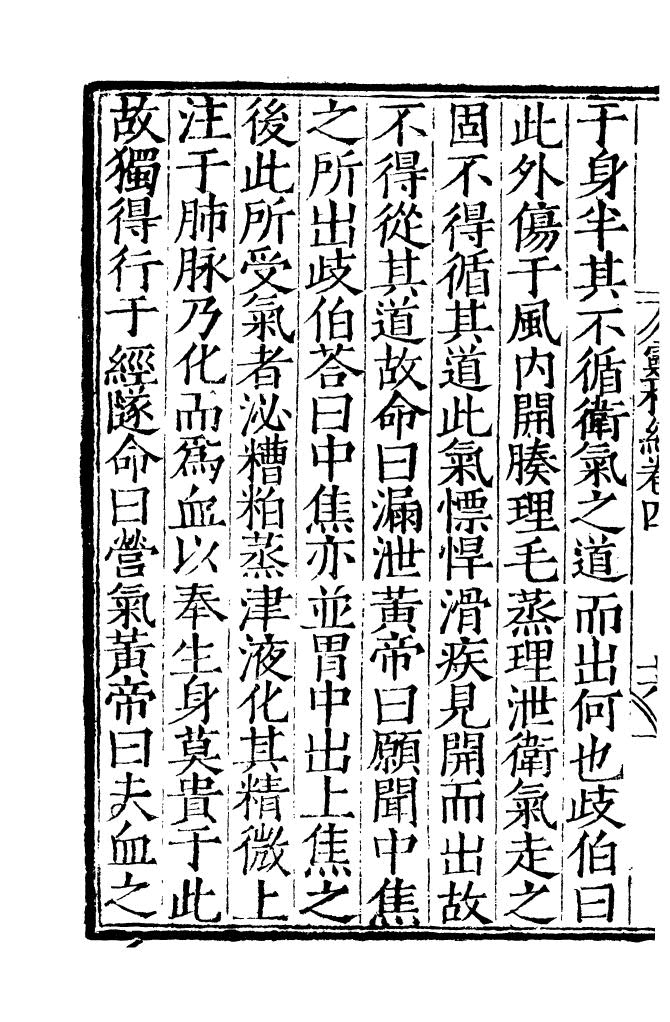 于身半其不循衛氣之道而出何也歧伯曰
此外傷于風内開腠理毛蒸理泄衛氣走之
固不得循其道此氣慓悍滑疾見開而出故
不得從其道故命曰漏泄黃帝曰願聞中焦
之所出歧伯荅曰中焦亦並胃中出上焦之
後此所受氣者泌糟粕蒸津液化其精微上
注于肺脉乃化而爲血以奉生身莫貴于此
故獨得行于經隧命曰營氣黃帝曰夫血之